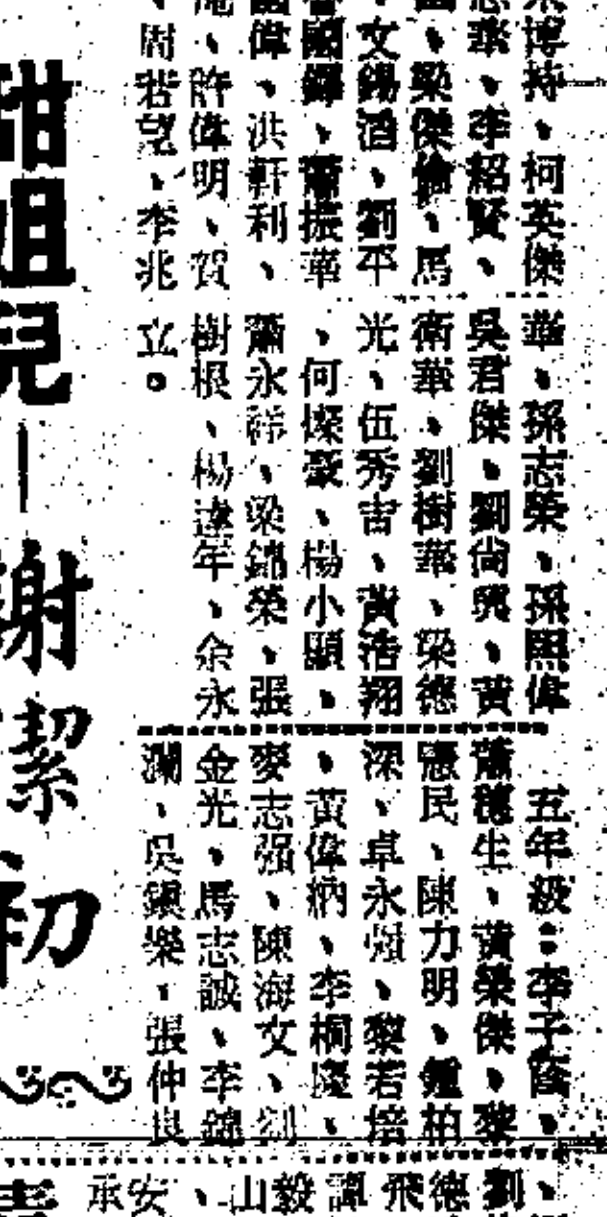 博持、柯英傑
華、李紹賢、
、梁傑倫、馬
文錫酒、劉平
、蕭振華
偉、洪軒利、
、許偉明、賀
、周若望、李兆
華、孫志榮、孫熙偉
吳君傑、劉尚興、黃
衛華、劉樹華、梁德
光、伍秀吉、黃浩翔
、何傑豪、楊小顯、
蕭永祥、梁錦榮、張
樹根、楊達年、余永
立。
五年級：李子蔭、
蕭穗生、黃榮傑、黎
憲民、陳力明、鍾柏
深、卓永頒、黎若培
、黃偉納、李桐慶、
麥志强、陳海文、劉
金光、馬志誠、李錦
瀾、吳鎮樂、張仲良
甜姐兒—謝潔初
劉
德
飛
譚
毅
山、
安
承